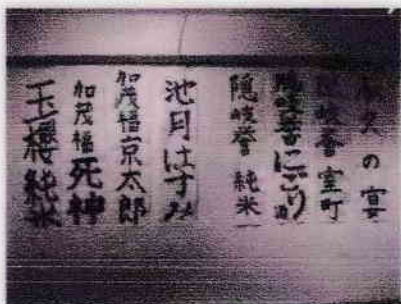 の宴
岐誉室町
隠岐誉にごり酒
隠岐誉純米
池月はすみ
加茂福京太郎
加茂福死神
玉櫻純米